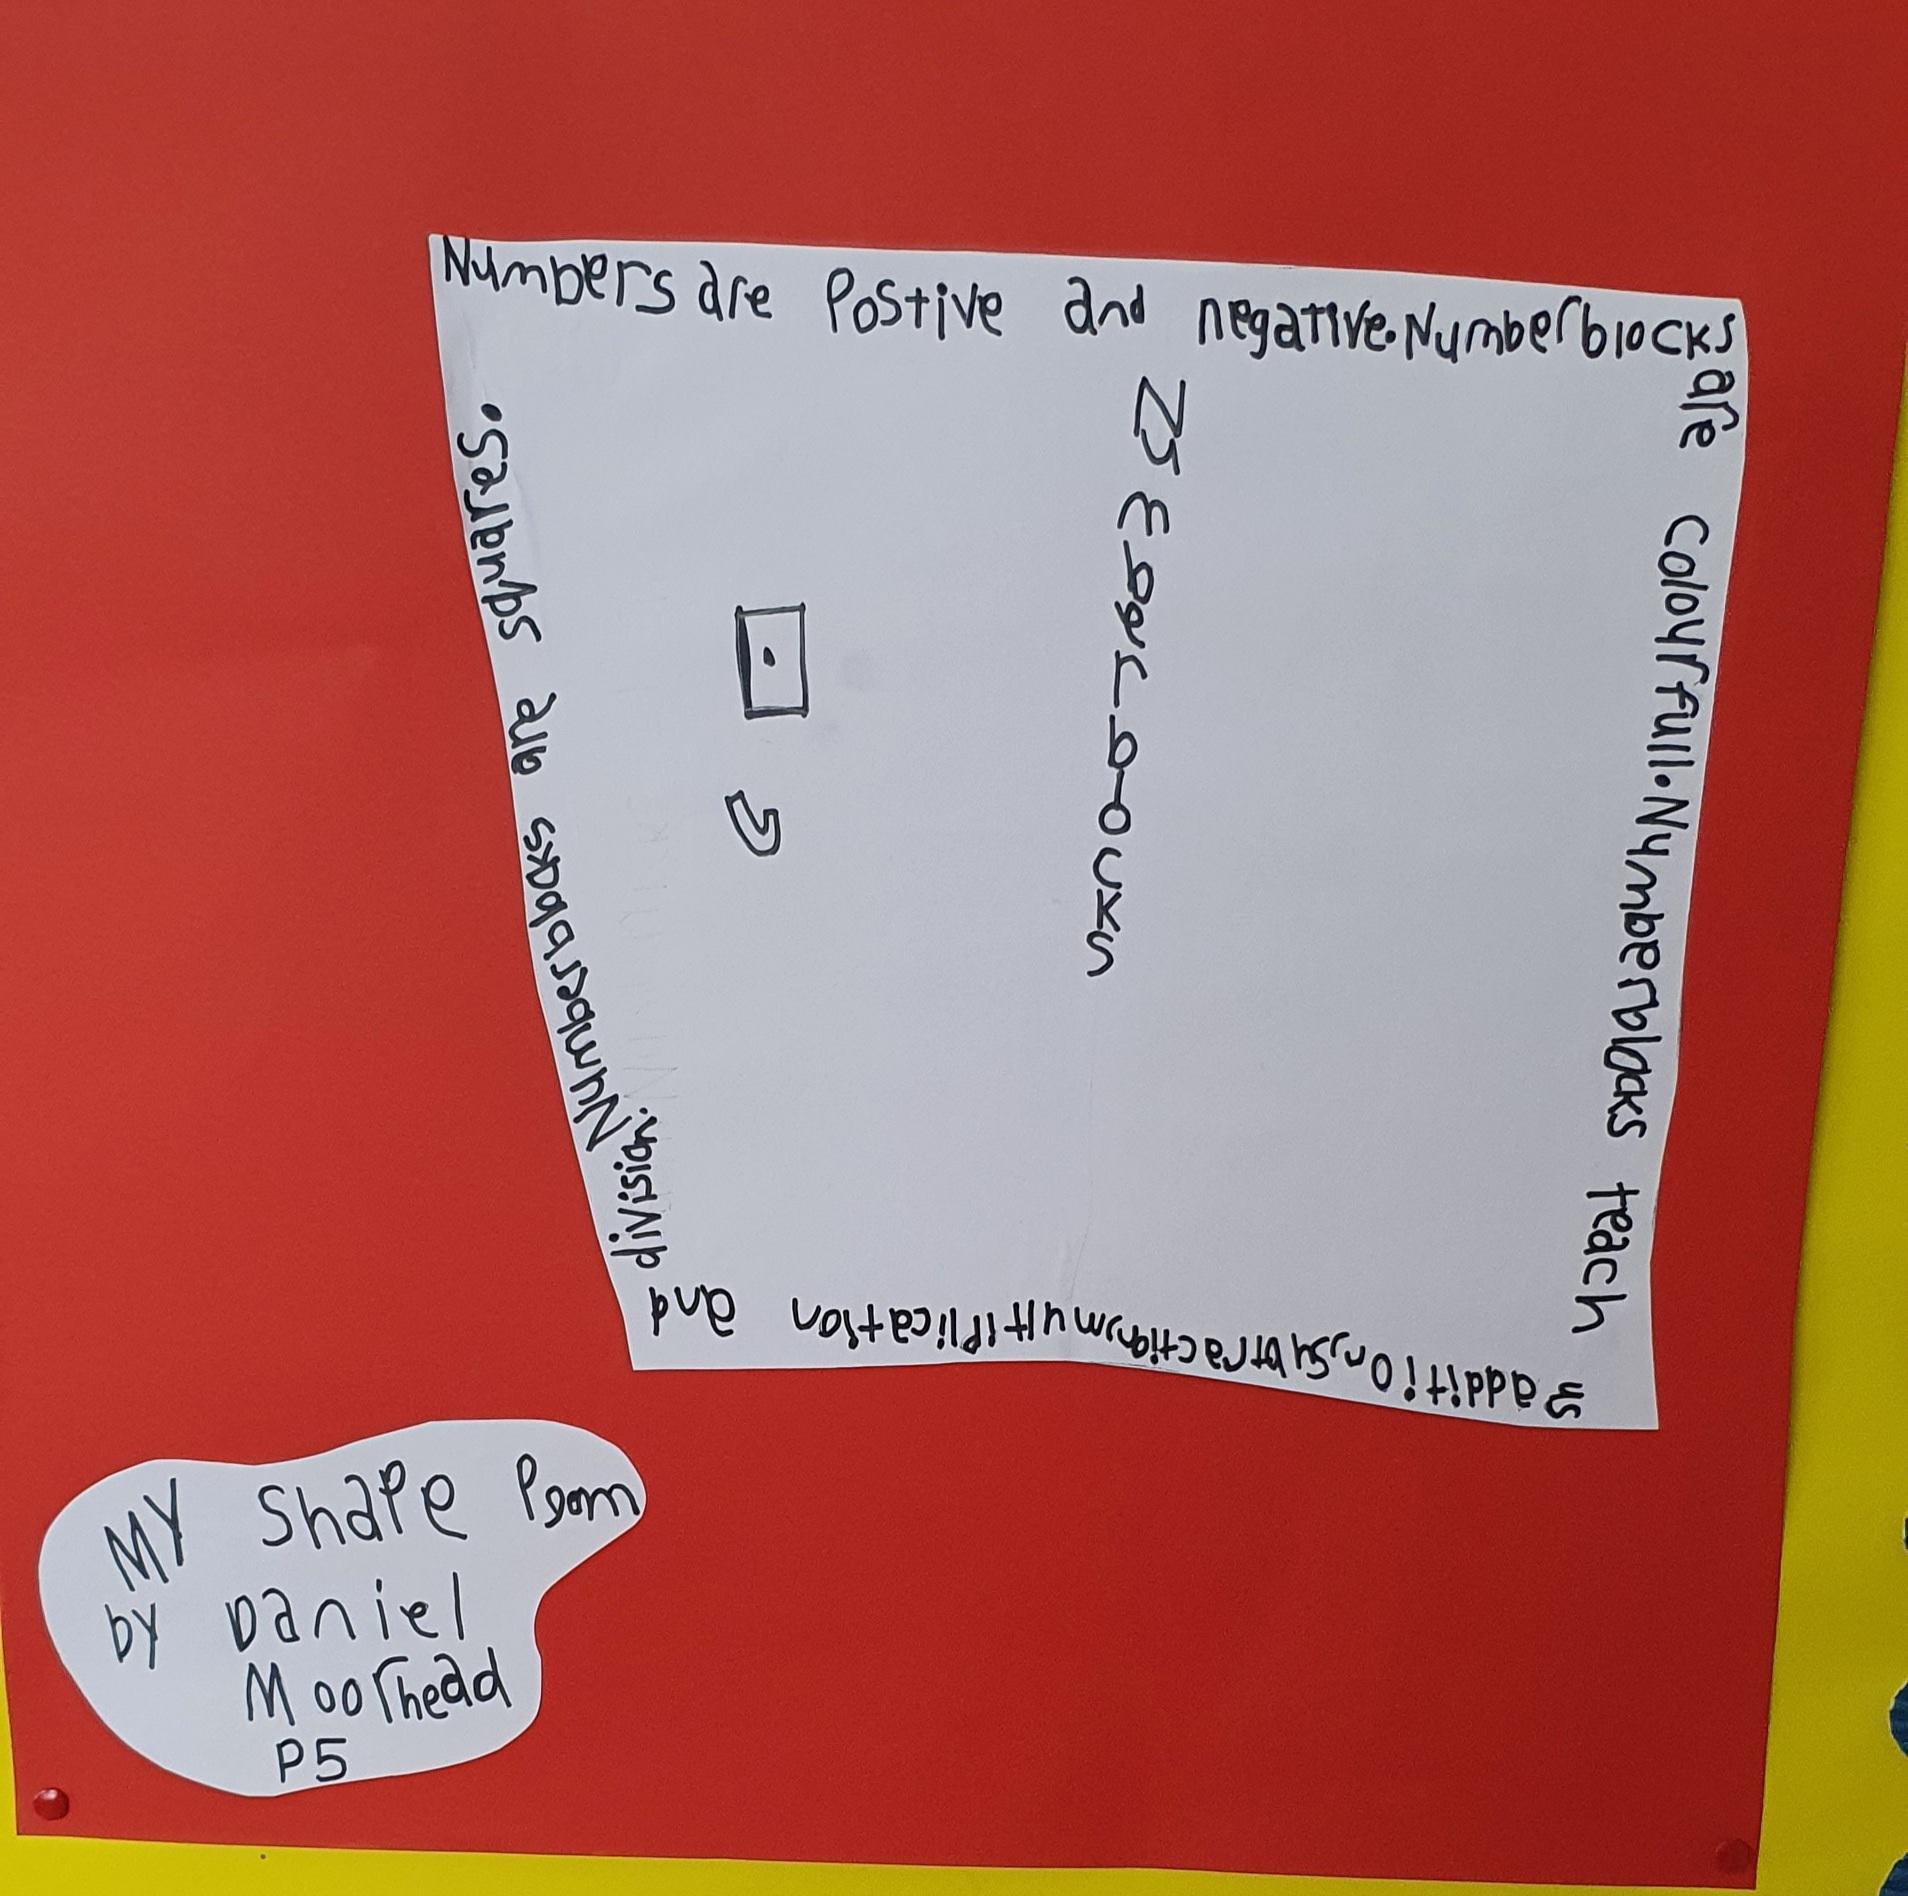 Numbers are Postive and negative. Numberblocks
are colourfull. Numberblocks teach
us addition, subtraction, multiplication and
division.
Numberblocks are squares.
Numberblocks
MY Shape Poem
by Daniel
Moorhead
P5